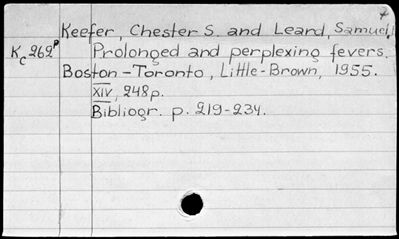 Keefer, Chester S. and Leard, Samuel.
Kc262p Prolonged and perplexing fevers.
Boston-Toronto, Little-Brown, 1955.
XIV, 248p.
Bibliogr. p. 219-234.